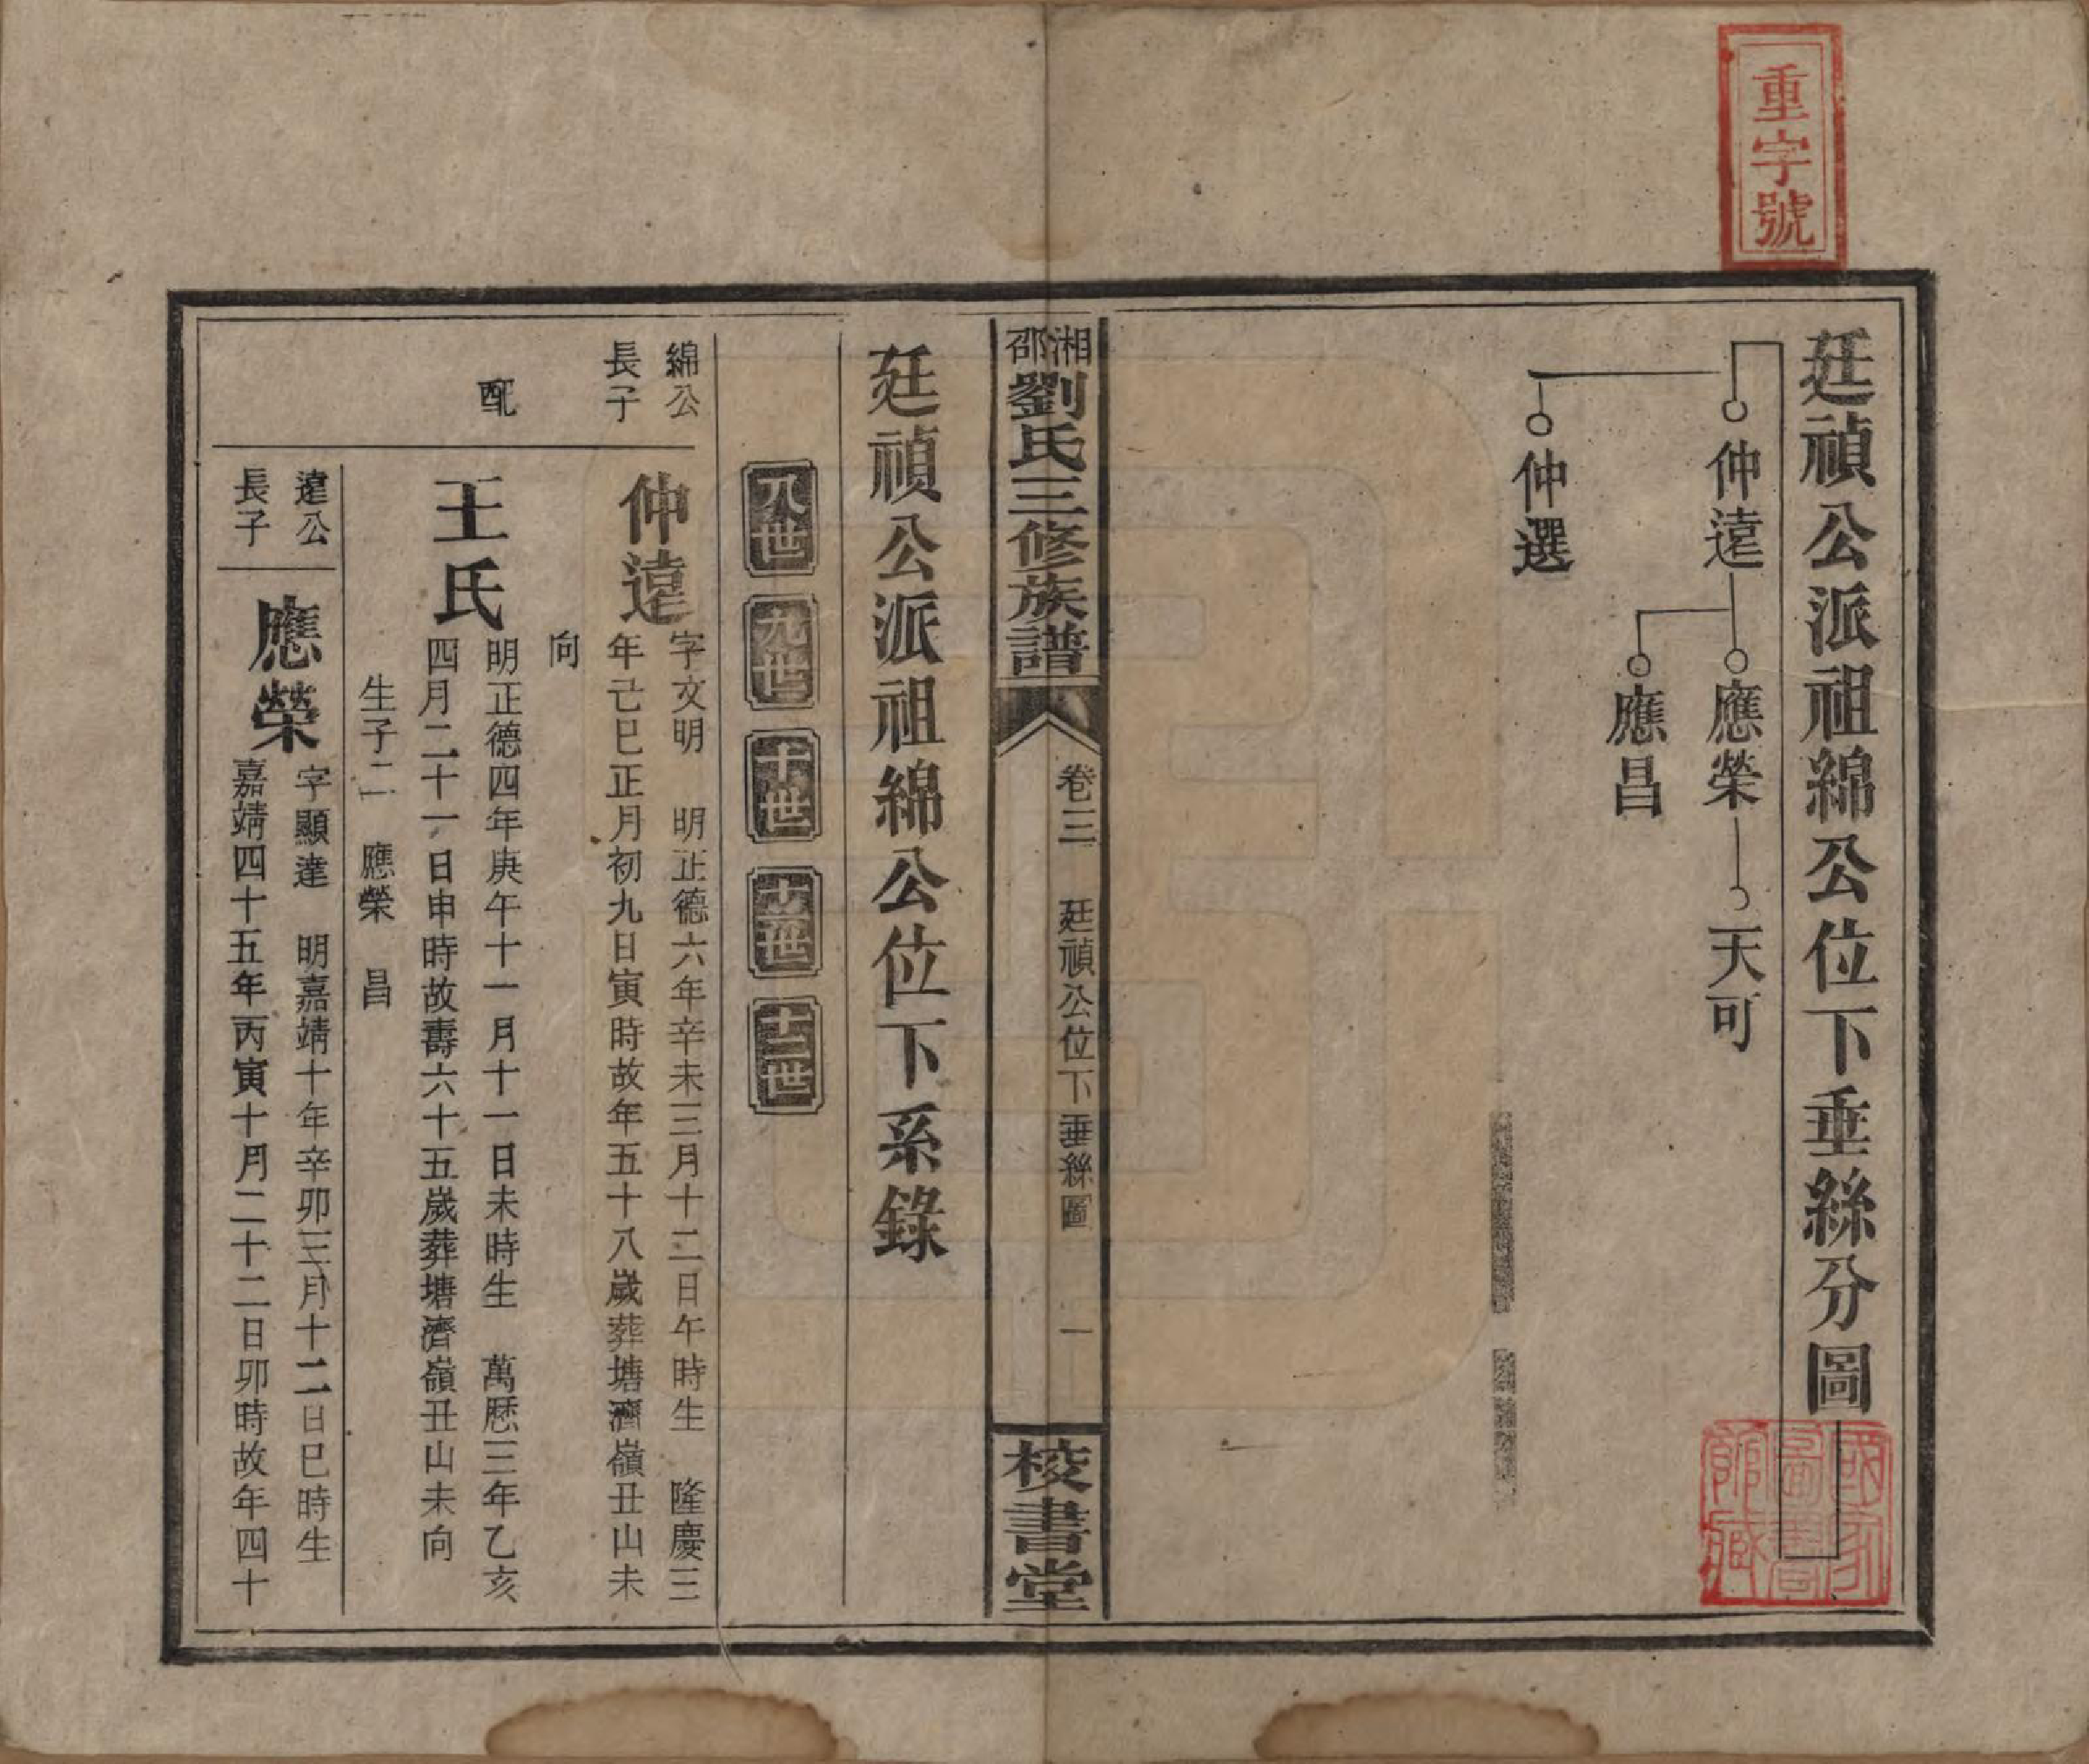 重字號
廷禎公派祖綿公位下垂絲分圖
仲遠
應榮
天可
應昌
仲選
湘邵劉氏三修族譜
卷三　廷禎公位下垂絲圖　一
校書堂
廷禎公派祖綿公位下系錄
八世　九世　十世　十一世　十二世
綿公
長子
仲遠
字文明　明正德六年辛未三月十二日午時生　隆慶三
年己巳正月初九日寅時故年五十八歲葬塘濟嶺丑山未
向
配
王氏
明正德四年庚午十一月十一日未時生　萬歷三年乙亥
四月二十一日申時故壽六十五歲葬塘濟嶺丑山未向
生子二　應榮　昌
遠公
長子
應榮
字顯達　明嘉靖十年辛卯三月十二日巳時生
嘉靖四十五年丙寅十月二十二日卯時故年四十
國家
圖書
館藏